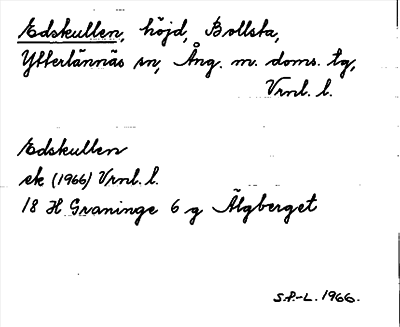 Edskullen, höjd, Bollsta,
Ytterlännäs sn, Ång. m. doms. tg,
Vrnl. l.
Edskullen
ek (1966) Vrnl. l.
18 H Graninge 6 g Älgberget
S.P.-L. 1966.